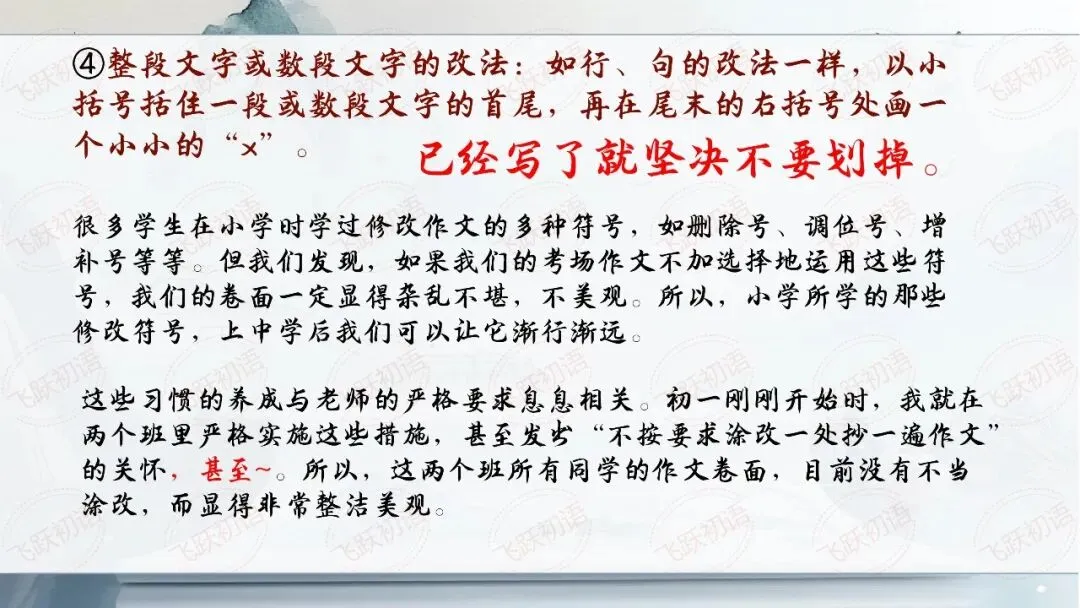 ④整段文字或数段文字的改法：如行、句的改法一样，以小
括号括住一段或数段文字的首尾，再在尾末的右括号处画一
个小小的“x”。
已经写了就坚决不要划掉。
很多学生在小学时学过修改作文的多种符号，如删除号、调位号、增
补号等等。但我们发现，如果我们的考场作文不加选择地运用这些符
号，我们的卷面一定显得杂乱不堪，不美观。所以，小学所学的那些
修改符号，上中学后我们可以让它渐行渐远。
这些习惯的养成与老师的严格要求息息相关。初一刚刚开始时，我就在
两个班里严格实施这些措施，甚至发出“不按要求涂改一处抄一遍作文”
的关怀，甚至~。所以，这两个班所有同学的作文卷面，目前没有不当
涂改，而显得非常整洁美观。
飞跃初语